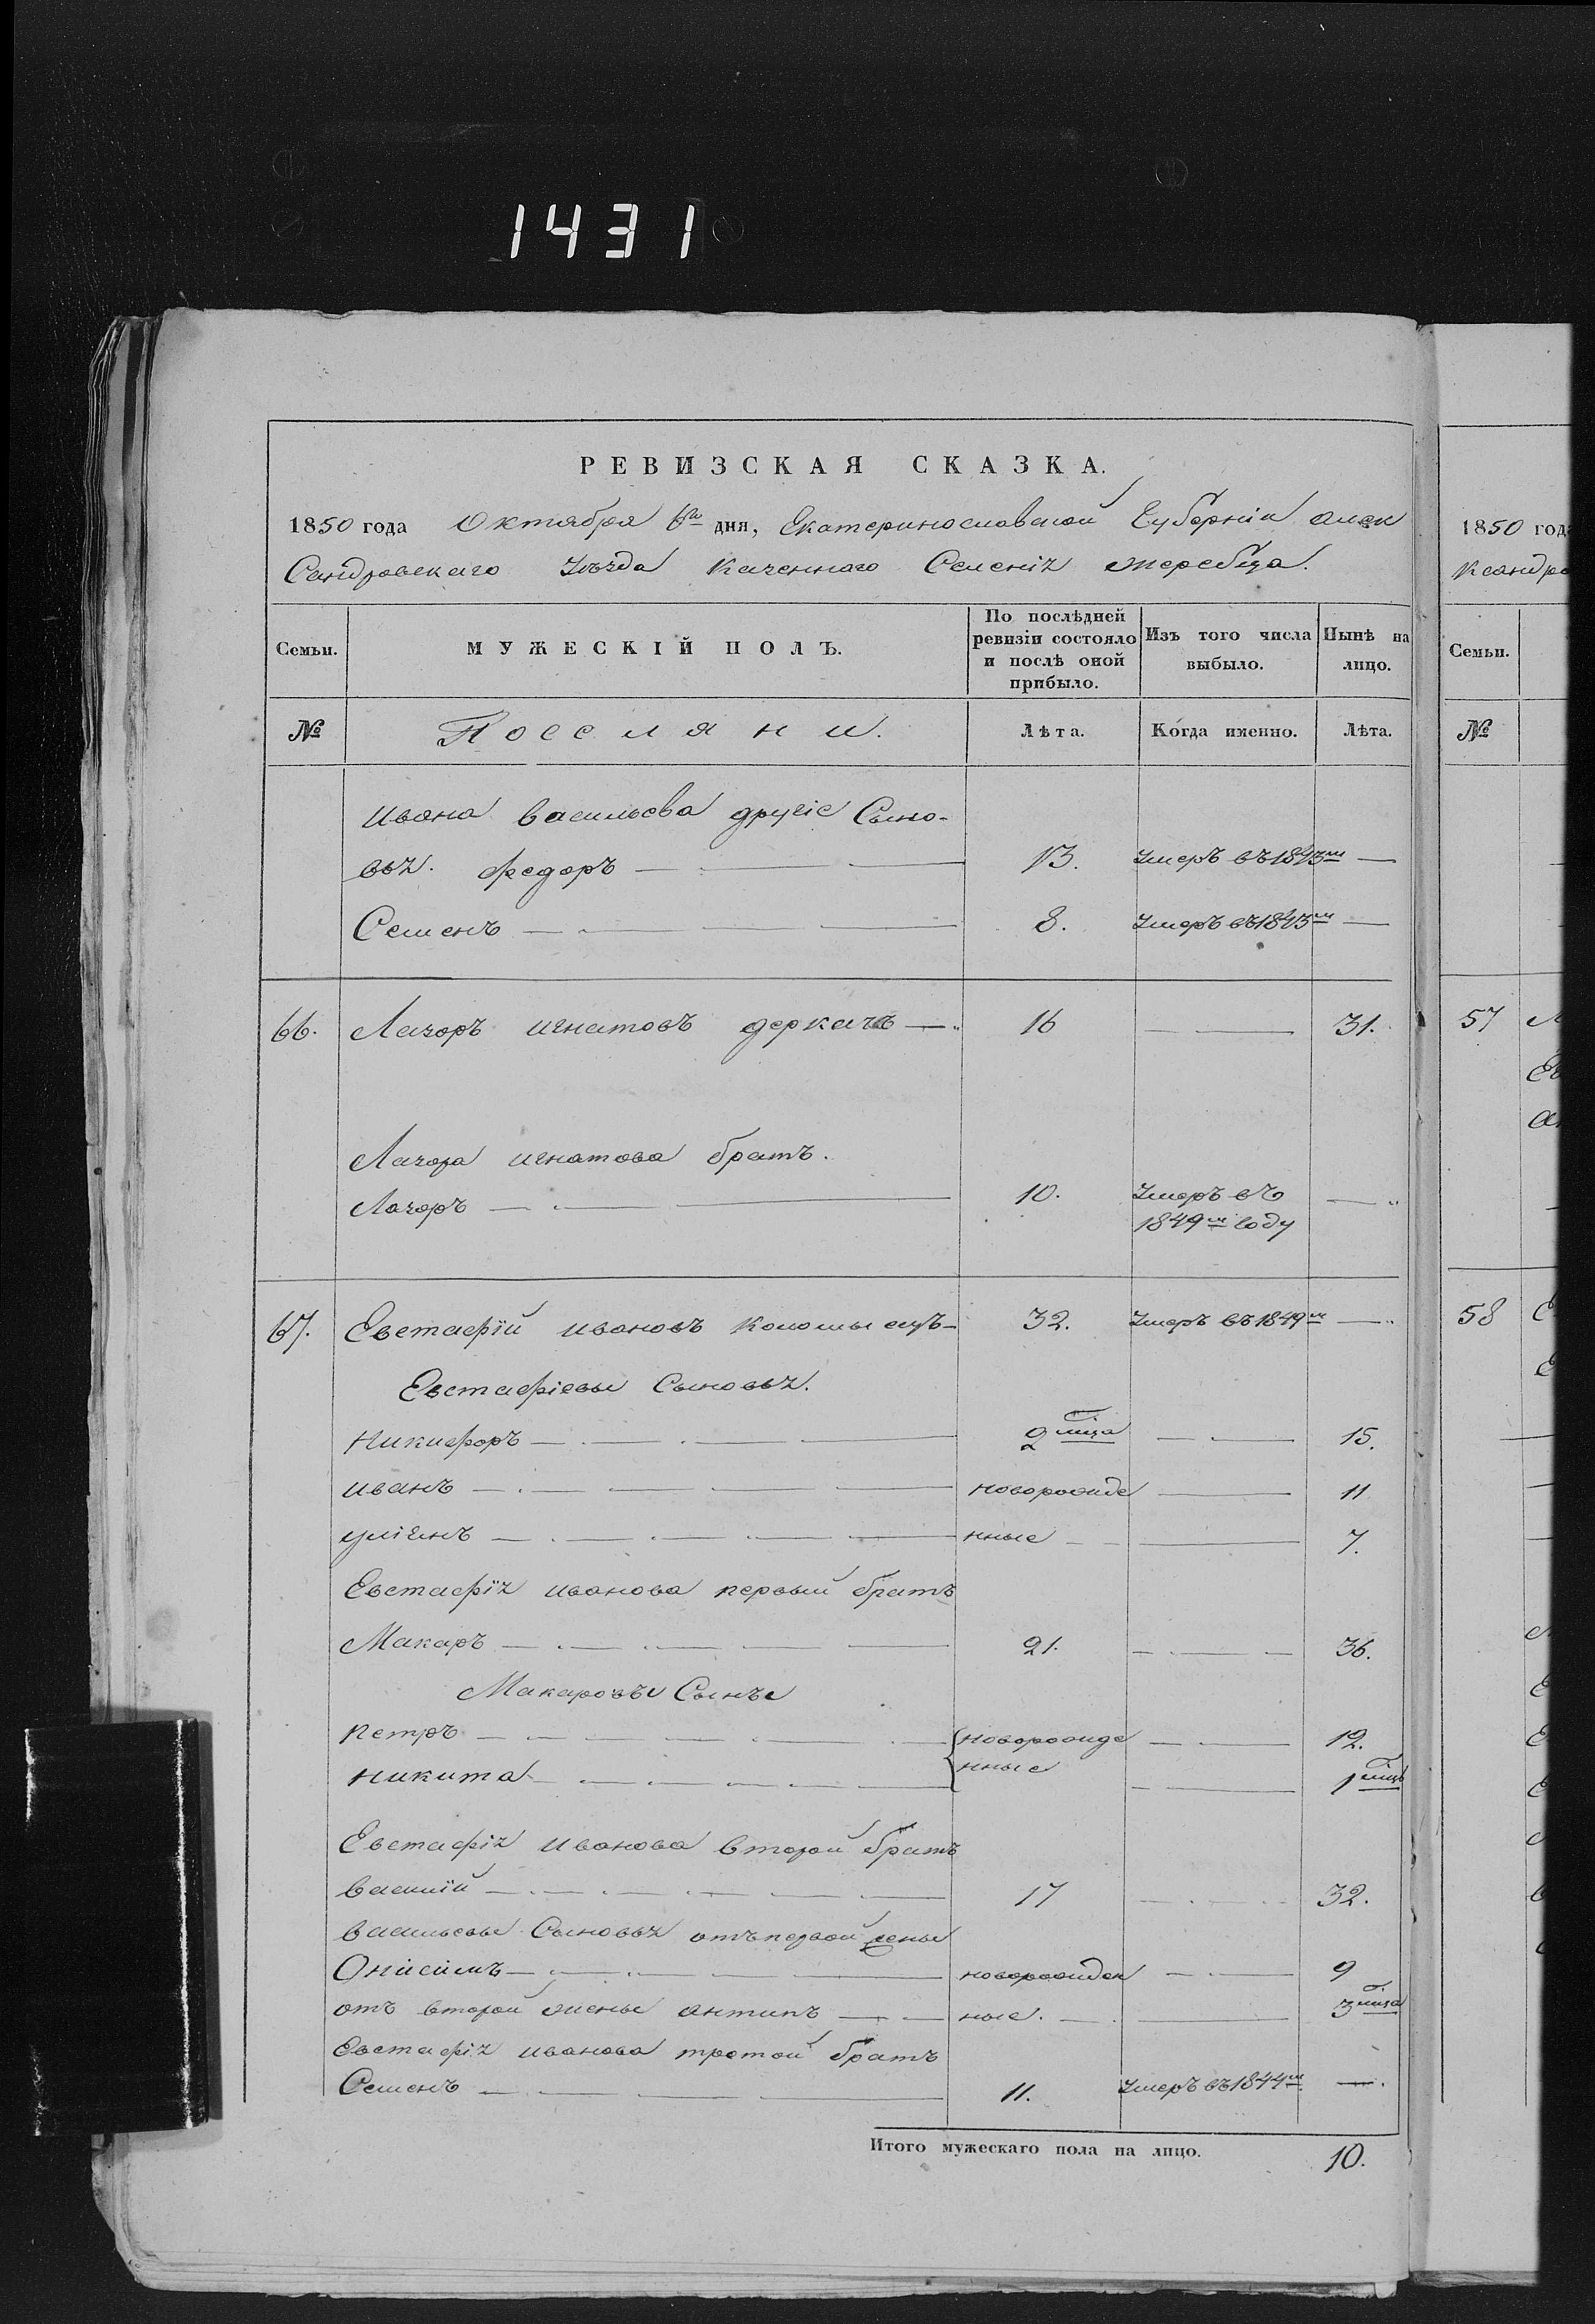 1431
РЕВИЗСКАЯ СКАЗКА.
1850 года Октября 6го дня, Екатеринославской Губерніи Алек
Сандровскаго Уѣзда казеннаго Селенія жеребца.
Семьи.
МУЖЕСКІЙ ПОЛЪ.
По послѣдней ревизіи состояло и послѣ оной прибыло.
Изъ того числа выбыло.
Нынѣ на лицо.
№
Поселяни.
Лѣта.
Когда именно.
Лѣта.
Ивана Васильева другіе Сыно-
вья. Федоръ 13. Умеръ въ 1843м —
Семенъ 8. Умеръ въ 1843м —
66. Лазоръ Игнатовъ Деркачъ 16 — 31.
Лазора Игнатова братъ.
Лазоръ 10. Умеръ въ —
1849м году
67. Евстафій Ивановъ 32. Умеръ въ 1849м —
Евстафіевы Сыновья.
Никифоръ 2 мца — 15.
Иванъ новорожде — 11
нные — 7.
Евстафія Иванова первый братъ
Макаръ 21. — 36.
Макаровы Сынве
Петръ новорожде — 12.
Никита нные — 1 мцъ
Евстафія Иванова второй братъ
Василій 17 — 32.
Васильевы Сыновья отъ первой жены
Онисимъ новорожден — 9
отъ второй жены Антипъ ные. — 3 мца
Евстафія Иванова третой братъ
Семенъ 11. Умеръ въ 1844м —.
Итого мужескаго пола на лицо. 10.
1850 год
ксандро
Семьи.
№
57
58